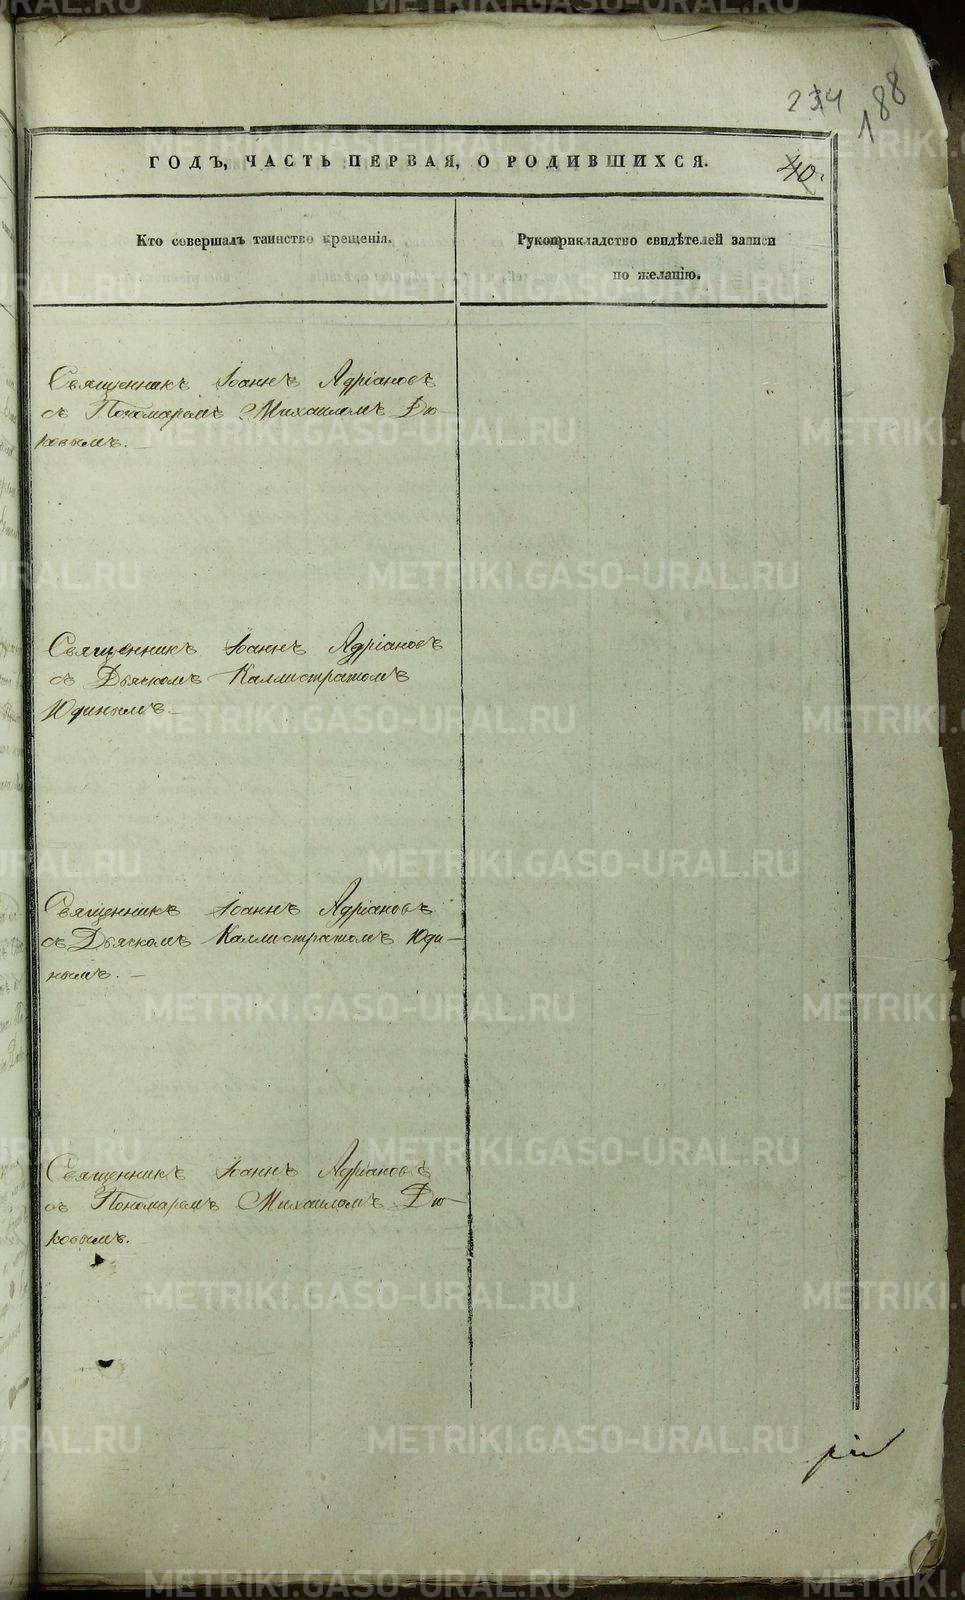 234
188
ГОДЪ, ЧАСТЬ ПЕРВАЯ, О РОДИВШИХСЯ.
40.
Кто совершалъ таинство крещенія.
Рукоприкладство свидѣтелей записи
по желанію.
Священникъ Іоаннъ Адріановъ
съ Пономаремъ Михаиломъ Дю
ковымъ.
Священникъ Іоаннъ Адріановъ
съ Дьячкомъ Каллистратомъ
Юдинымъ
Священникъ Іоаннъ Адріановъ
съ Дьячкомъ Каллистратомъ Юди-
нымъ. -
Священникъ Іоаннъ Адріановъ
съ Пономаремъ Михаиломъ Дю-
ковымъ.
METRIKI.GASO-URAL.RU